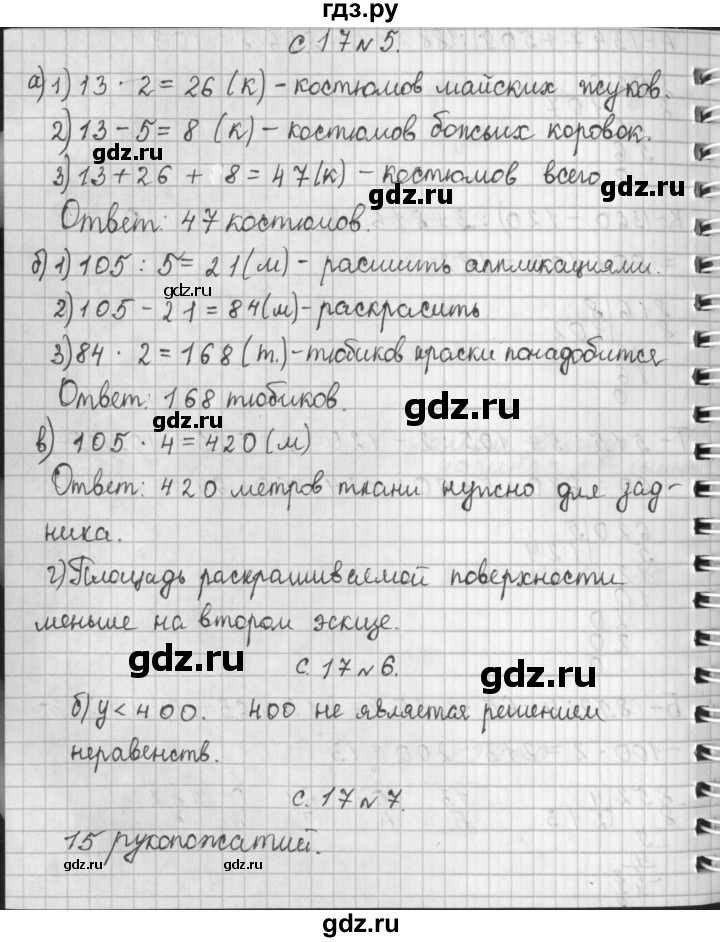 гдз.ру
с 17 № 5.
а) 1) 13 · 2 = 26 (к) - костюмов майских жуков.
2) 13 - 5 = 8 (к) - костюмов божьих коровок.
gdz.ru
3) 13 + 26 + 8 = 47 (к) - костюмов всего
gdz.ru
Ответ: 47 костюмов.
б) 1) 105 : 5 = 21 (м) - расшить аппликациями.
gdz.ru
2) 105 - 21 = 84 (м) - раскрасить
3) 84 · 2 = 168 (т.) - тюбиков краски понадобится
Ответ: 168 тюбиков.
gdz.ru
gdz.ru
в) 105 · 4 = 420 (м)
Ответ: 420 метров ткани нужно для зад-
ника.
г) Площадь раскрашиваемой поверхности
меньше на втором эскизе.
gdz.ru
с. 17 № 6.
gdz.ru
б) у < 400. 400 не является решением
неравенств.
с. 17 № 7.
15 рукопожатий.
gdz.ru
gdz.ru
gdz.ru
gdz.ru